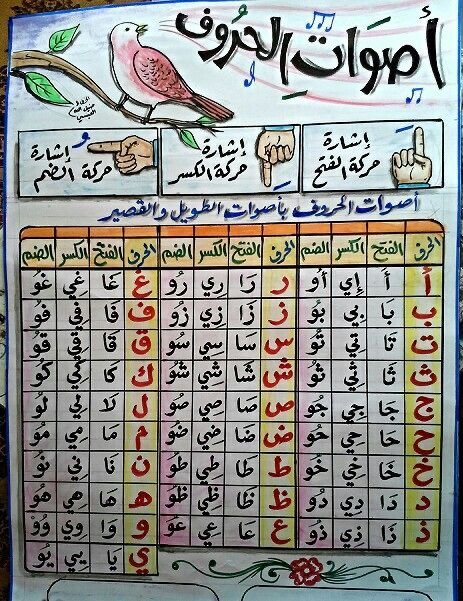 أصوات الحروف
إشارة حركة الفتح
إشارة حركة الكسر
إشارة حركة الضم
أصوات الحروف بأصوات الطويل والقصير
الحرف الفتح الكسر الضم الحرف الفتح الكسر الضم الحرف الفتح الكسر الضم
أ أَ إِي أُو ر رَا رِي رُو غ غَا غِي غُو
ب بَا بِي بُو ز زَا زِي زُو ف فَا فِي فُو
ت تَا تِي تُو س سَا سِي سُو ق قَا قِي قُو
ث ثَا ثِي ثُو ش شَا شِي شُو ك كَا كِي كُو
ج جَا جِي جُو ص صَا صِي صُو ل لَا لِي لُو
ح حَا حِي حُو ض ضَا ضِي ضُو م مَا مِي مُو
خ خَا خِي خُو ط طَا طِي طُو ن نَا نِي نُو
د دَا دِي دُو ظ ظَا ظِي ظُو ه هَا هِي هُو
ذ ذَا ذِي ذُو ع عَا عِي عُو و وَا وِي وُو
ي يَا يِي يُو